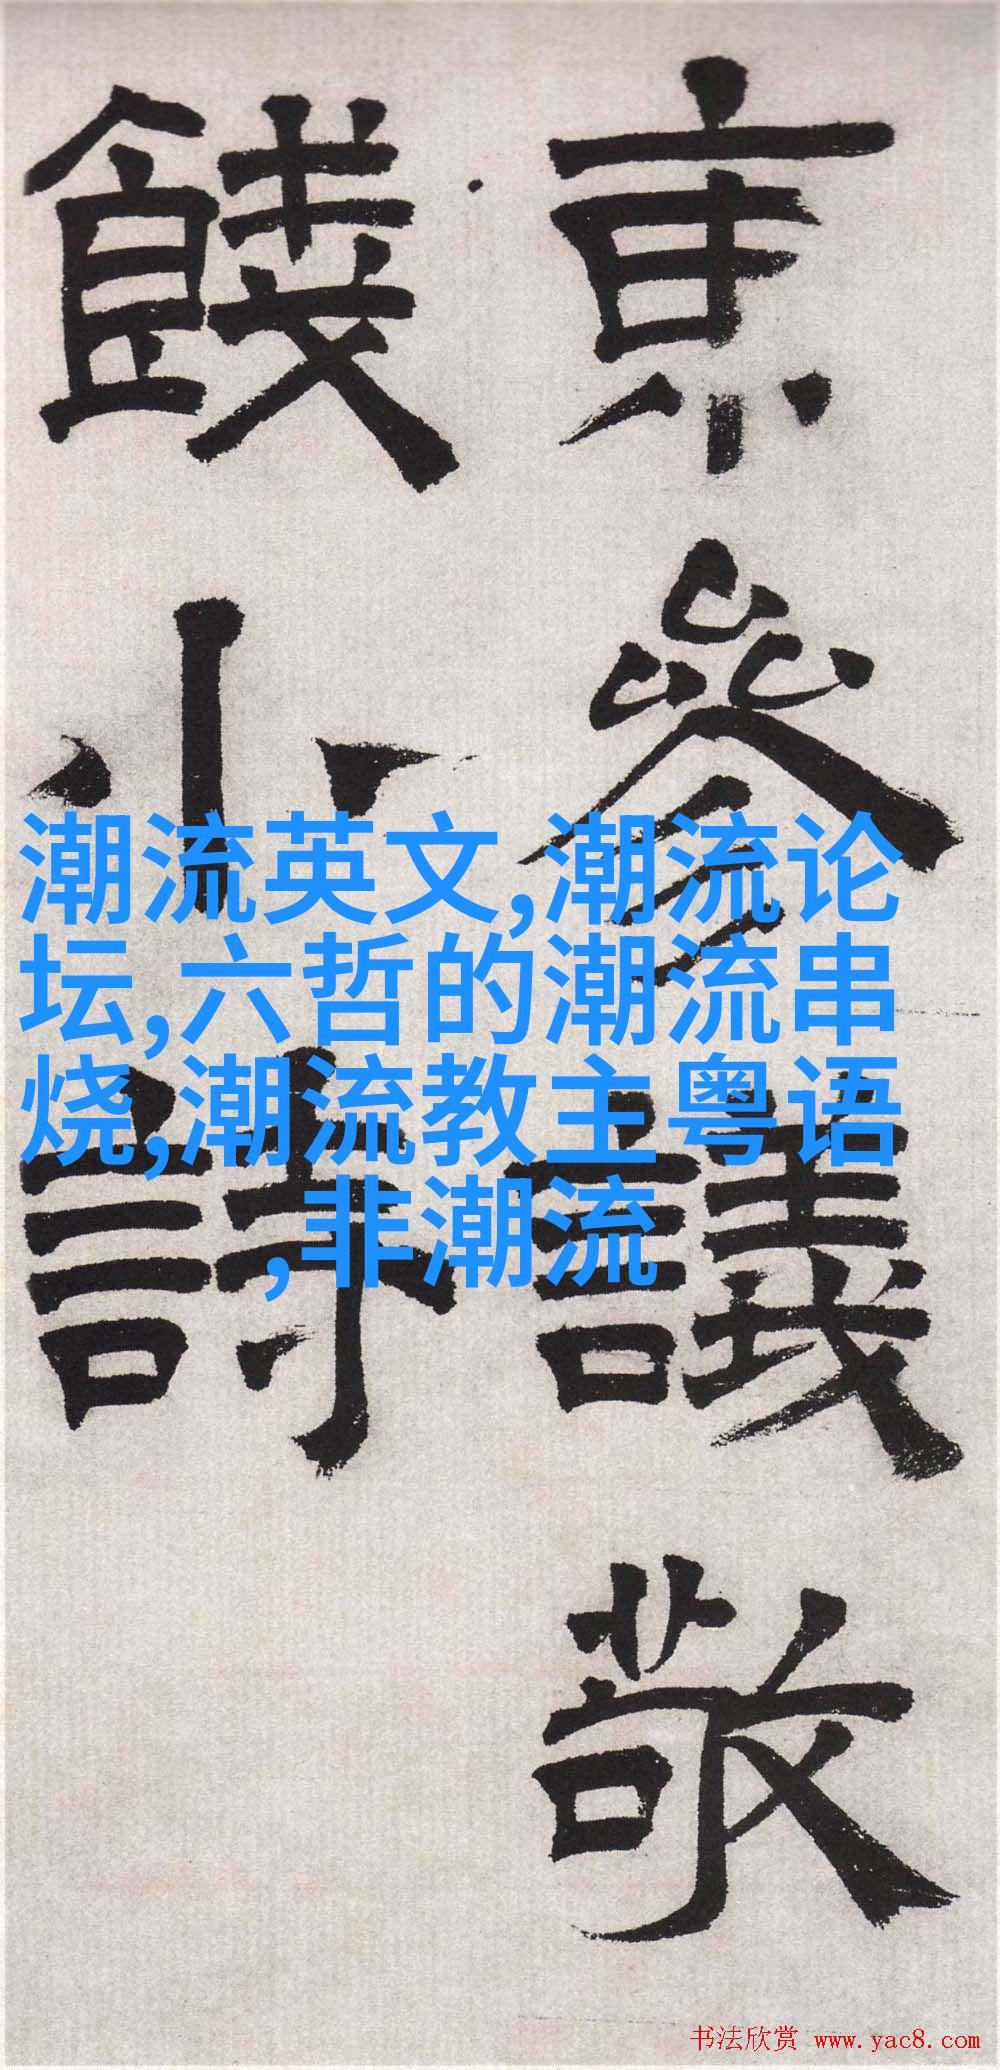 亰參議敬
餞小詩
潮流英文,潮流论
坛,六哲的潮流串
烧,潮流教主粤语
,非潮流
书法欣赏 www.yac8.com